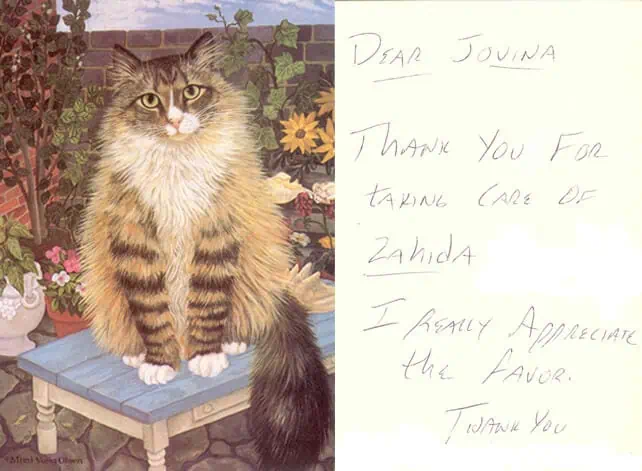 DEAR JOVINA
THANK YOU FOR
TAKING CARE OF
ZAHIDA
I REALLY APPRECIATE
the FAVOR.
THANK YOU